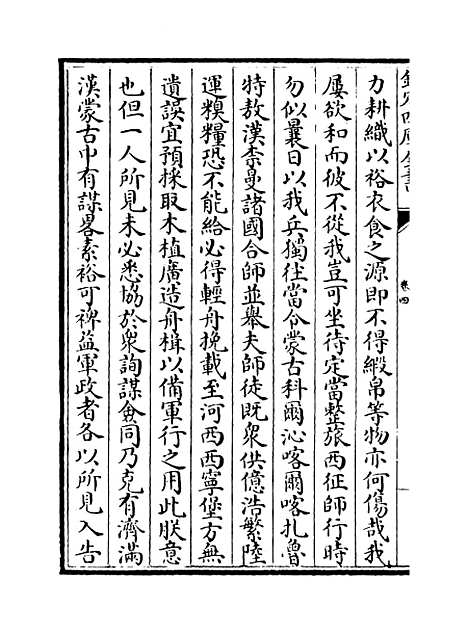 欽定四庫全書
卷四
力耕織以裕衣食之源即不得緞帛等物亦何傷哉我
屢欲和而彼不從我豈可坐待定當整旅西征師行時
勿似曩日以我兵獨往當令蒙古科爾沁喀爾喀扎魯
特敖漢柰曼諸國合師並舉夫師徒既衆供億浩繁陸
運糗糧恐不能給必得輕舟挽載至河西西寧堡方無
遺誤宜預採取木植廣造舟楫以備軍行之用此朕意
也但一人所見未必悉協於衆詢謀僉同乃克有濟滿
漢蒙古中有謀畧素裕可裨益軍政者各以所見入告